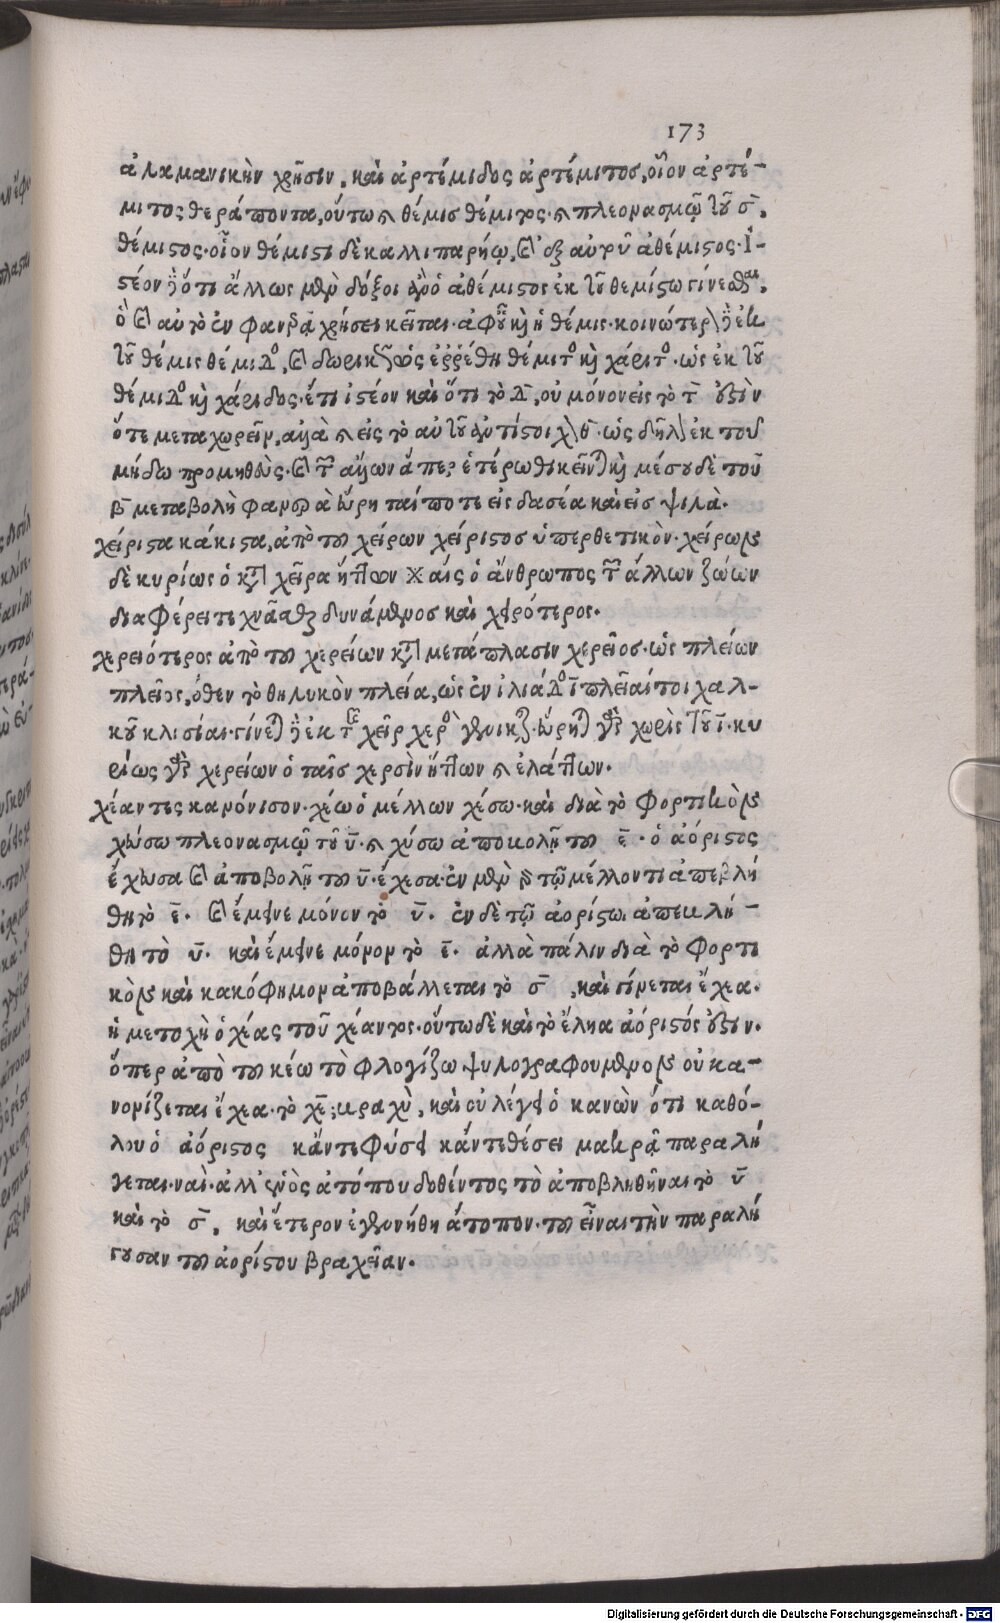 173
ἀλαμανικὴν χρῆσιν, καὶ ἀρτέμιδος ἀρτέμιτος, οἷον ἀρτέ-
μιτος θεράποντα, οὕτω καὶ θέμις θέμιτος· καὶ πλεονασμῷ τοῦ σ̄,
θέμιστος· οἷον θέμιστι δὲ καλλιπαρήῳ, καὶ ἐξ αὐτοῦ ἀθέμιστος· Ἰ-
στέον δὲ ὅτι ἄλλως μὲν δόξοι ἂν ὁ ἀθέμιστος ἐκ τοῦ θεμίστω γίνεσθαι,
ὃ καὶ αὐτὸ ἐν χρήσει κεῖται· ἀφ' οὗ καὶ ἡ θέμις· κοινώτερον δὲ ἐκ
τοῦ θέμις θέμιδος, καὶ δωρικῶς ἐρρέθη θέμιτος καὶ χάριτος· ὡς ἐκ τοῦ
θέμιδος καὶ χάριδος· ἔτι ἰστέον καὶ ὅτι τὸ δ̄, οὐ μόνον εἰς τὸ τ̄ ἐστὶν
ὅτε μεταχωρεῖν, ἀλλὰ καὶ εἰς τὸ αὐτοῦ ἀντίστοιχον θ̄· ὡς δῆλον ἐκ τοῦ
μήδω προμηθεὺς· καὶ τῶν ἄλλων ἅπερ ἑτέρωθι κεῖνται καὶ μέσου δὲ τοῦ
β̄ μεταβολὴ εὕρηταί ποτε εἰς δασέα καὶ εἰς ψιλὰ·
χείριστα κάκιστα, ἀπὸ τοῦ χείρων χείριστος ὑπερθετικὸν· χείρων
δὲ κυρίως ὁ κατὰ χεῖρα ἥττων αἷς ὁ ἄνθρωπος τῶν ἄλλων ζώων
διαφέρει τεχνᾶσθαι δυνάμενος καὶ χειρότερος·
χερειότερος ἀπὸ τοῦ χερείων κατὰ μετάπλασιν χερεῖος· ὡς πλείων
πλεῖος, ὅθεν τὸ θηλυκὸν πλεία, ὡς ἐν ἰλιάδος ῑ πλεῖαί τοι χαλ-
κοῦ κλισίαι· γίνεται δὲ ἐκ τῆς χεὶρ χερὸς γενικῆς· εὕρηται γὰρ χωρὶς τοῦ ῑ· κυ
ρίως γὰρ χερείων ὁ ταῖς χερσὶν ἥττων καὶ ἐλάττων·
χέαντες κανόνισον· χέω ὁ μέλλων χέσω· καὶ διὰ τὸ φορτικὸν
χεύσω πλεονασμῷ τοῦ ῡ· καὶ χύσω ἀποκολῆ τοῦ ε̄· ὁ ἀόριστος
ἔχευσα καὶ ἀποβολῆ τοῦ ῡ· ἔχεσα· ἐν μὲν γὰρ τῶ μέλλοντι ἀπεβλή
θη τὸ ε̄· καὶ ἔμεινε μόνον τὸ ῡ· ἐν δὲ τῷ ἀορίστω, ἀπεκλή-
θη τὸ ῡ· καὶ ἔμεινε μόνον τὸ ε̄· ἀλλὰ πάλιν διὰ τὸ φορτι
κὸν καὶ κακόφημον ἀποβάλλεται τὸ σ̄, καὶ γίνεται ἔχεα·
ἡ μετοχὴ ὁ χέας τοῦ χέαντος· οὕτω δὲ καὶ τὸ ἔκηα ἀόριστός ἐστιν·
ὅπερ ἀπὸ τοῦ κέω τὸ φλογίζω ψιλογραφουμένου οὐ κα-
νονίζεται ἔχεα· τὸ χε βραχὺ, καὶ οὐ λέγει ὁ κανὼν ὅτι καθό-
λου ὁ ἀόριστος κἄντε φύσει κἄντε θέσει μακρᾷ παραλή
γεται· ναὶ· ἀλλ' ἑνὸς ἀτόπου δοθέντος τὸ ἀποβληθῆναι τὸ ῡ
καὶ τὸ σ̄, καὶ ἕτερον ἐγεννήθη ἄτοπον· τοῦ εἶναι τὴν παραλή
γουσαν τοῦ ἀορίστου βραχεῖαν·
Digitalisierung gefördert durch die Deutsche Forschungsgemeinschaft - DFG